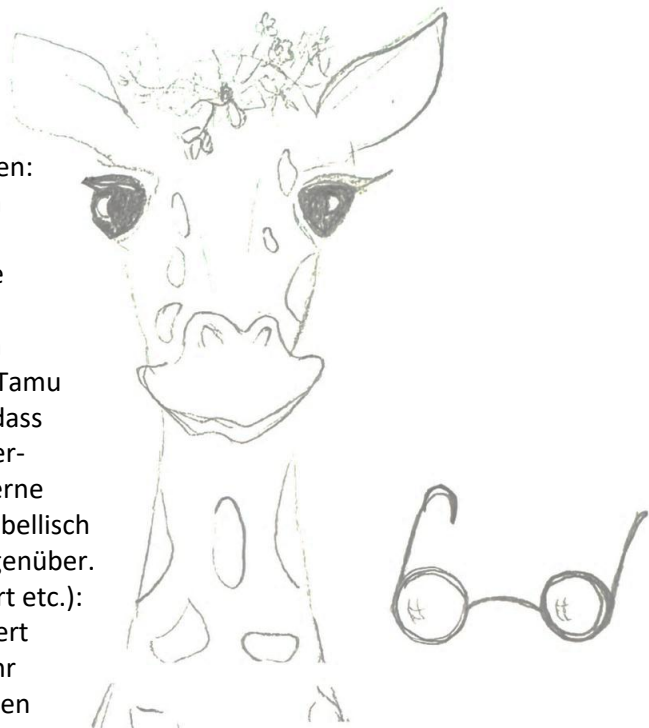 en:
e
Tamu
dass
er-
erne
bellisch
genüber.
rt etc.):
ert
hr
en